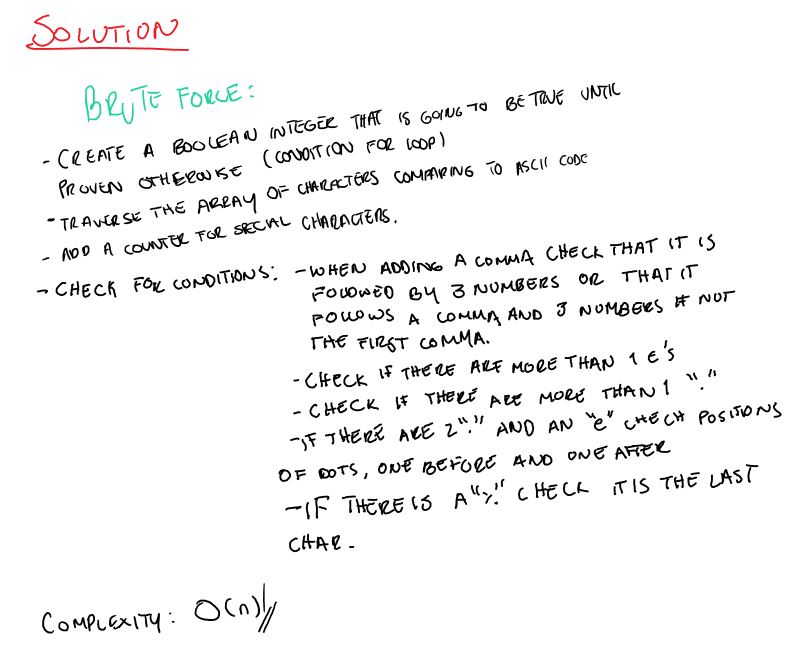 SOLUTION
BRUTE FORCE:
- CREATE A BOOLEAN INTEGER THAT IS GOING TO BE TRUE UNTIL
PROVEN OTHERWISE (CONDITION FOR LOOP)
- TRAVERSE THE ARRAY OF CHARACTERS COMPARING TO ASCII CODE
- ADD A COUNTER FOR SPECIAL CHARACTERS.
- CHECK FOR CONDITIONS: - WHEN ADDING A COMMA CHECK THAT IT IS
FOLLOWED BY 3 NUMBERS OR THAT IT
FOLLOWS A COMMA AND 3 NUMBERS IF NOT
THE FIRST COMMA.
- CHECK IF THERE ARE MORE THAN 1 e's
- CHECK IF THERE ARE MORE THAN 1 "."
- IF THERE ARE 2 "." AND AN "e" CHECH POSITIONS
OF DOTS, ONE BEFORE AND ONE AFTER
- IF THERE IS A "%" CHECK IT IS THE LAST
CHAR.
COMPLEXITY: O(n)//